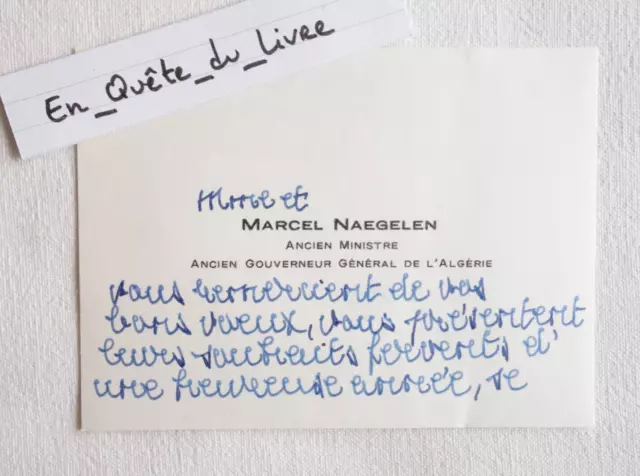 En_Quête_du_Livre
Mme et
MARCEL NAEGELEN
ANCIEN MINISTRE
ANCIEN GOUVERNEUR GÉNÉRAL DE L'ALGÉRIE
vous remercient de vos
bons voeux, vous présentent
leurs souhaits fervents d'
une heureuse année, se